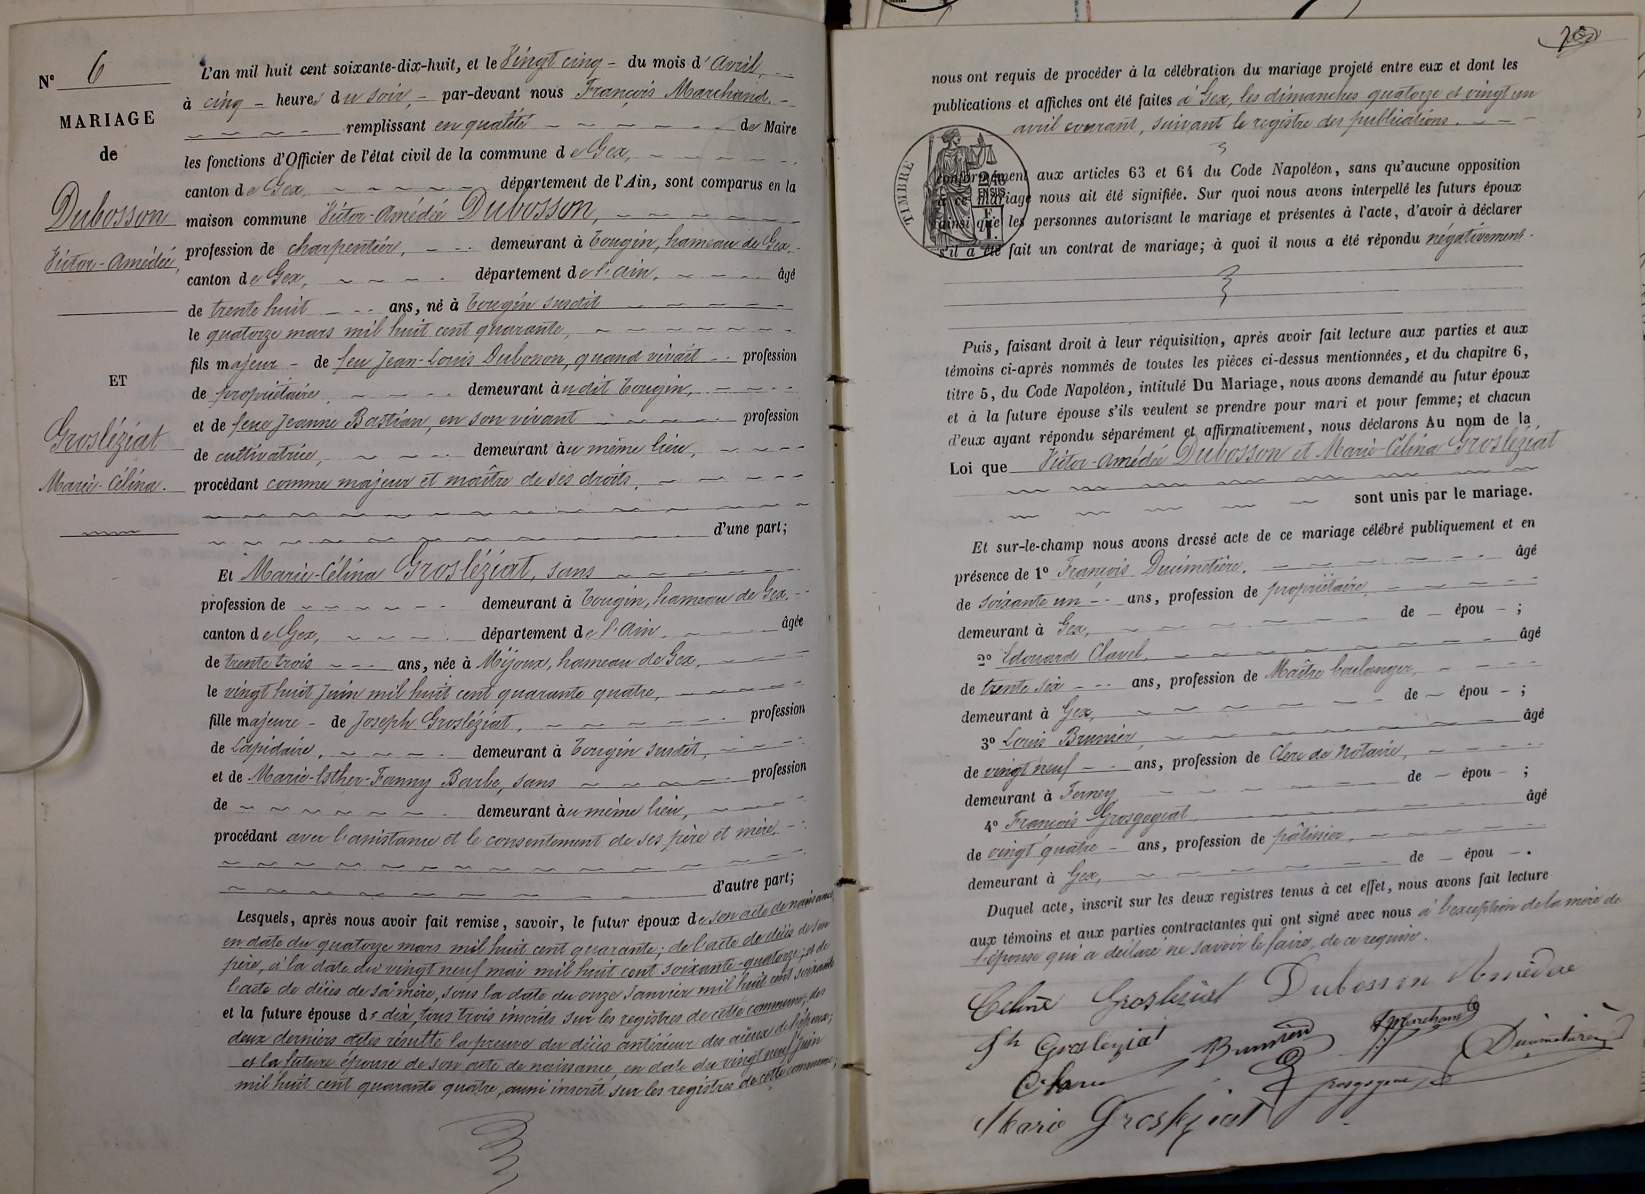 N° 6
MARIAGE
de
Dubosson
Victor-Amédée,
ET
Grosléziat
Marie-Célina.
L'an mil huit cent soixante-dix-huit, et le Vingt cinq - du mois d'Avril,
à cinq - heures du soir, - par-devant nous François Marchand -
remplissant en qualité de Maire
les fonctions d'Officier de l'état civil de la commune de Gex,
canton de Gex, département de l'Ain, sont comparus en la
maison commune Victor-Amédée Dubosson,
profession de charpentier, demeurant à Tougin, hameau de Gex,
canton de Gex, département de l'Ain, âgé
de trente huit ans, né à Tougin susdit
le quatorze mars mil huit cent quarante,
fils majeur - de feu Jean-Louis Dubosson, quand vivait profession
de propriétaire, demeurant audit Tougin,
et de feue Jeanne Bastian, en son vivant profession
de cultivatrice, demeurant au même lieu,
procédant comme majeur et maître de ses droits,
d'une part;
Et Marie-Célina Grosléziat, sans
profession de demeurant à Tougin, hameau de Gex,
canton de Gex, département de l'Ain, âgée
de trente trois ans, née à Mijoux, hameau de Gex,
le vingt huit Juin mil huit cent quarante quatre,
fille majeure - de Joseph Grosléziat, profession
de Lapidaire, demeurant à Tougin susdit,
et de Marie-Esther-Fanny Barbe, sans profession
de demeurant au même lieu,
procédant avec l'assistance et le consentement de ses père et mère
d'autre part;
Lesquels, après nous avoir fait remise, savoir, le futur époux de son acte de naissance
en date du quatorze mars mil huit cent quarante; de l'acte de décès de son
père, à la date du vingt neuf mai mil huit cent soixante-quatorze; et de
l'acte de décès de sa mère, sous la date du onze Janvier mil huit cent soixante
et la future épouse de dix, tous trois inscrits sur les registres de cette commune, des
deux derniers actes résulte la preuve du décès antérieur des aïeux de l'époux;
et la future épouse de son acte de naissance, en date du vingt neuf Juin
mil huit cent quarante quatre, aussi inscrit sur les registres de cette commune;
nous ont requis de procéder à la célébration du mariage projeté entre eux et dont les
publications et affiches ont été faites à Gex, les dimanches quatorze et vingt un
avril courant, suivant le registre des publications.
TIMBRE
conformément aux articles 63 et 64 du Code Napoléon, sans qu'aucune opposition
à ce mariage nous ait été signifiée. Sur quoi nous avons interpellé les futurs époux
ainsi que les personnes autorisant le mariage et présentes à l'acte, d'avoir à déclarer
s'il a été fait un contrat de mariage; à quoi il nous a été répondu négativement.
Puis, faisant droit à leur réquisition, après avoir fait lecture aux parties et aux
témoins ci-après nommés de toutes les pièces ci-dessus mentionnées, et du chapitre 6,
titre 5, du Code Napoléon, intitulé Du Mariage, nous avons demandé au futur époux
et à la future épouse s'ils veulent se prendre pour mari et pour femme; et chacun
d'eux ayant répondu séparément et affirmativement, nous déclarons Au nom de la
Loi que Victor-Amédée Dubosson et Marie-Célina Grosléziat
sont unis par le mariage.
Et sur-le-champ nous avons dressé acte de ce mariage célébré publiquement et en
présence de 1° François Ducimetière, âgé
de soixante un ans, profession de propriétaire,
demeurant à Gex, de - épou - ;
2° Edouard Clavel, âgé
de trente six ans, profession de Maître boulanger,
demeurant à Gex, de - épou - ;
3° Louis Brunier, âgé
de vingt neuf ans, profession de Clerc de Notaire,
demeurant à Ferney de - épou - ;
4° François Grosgogeat âgé
de vingt quatre - ans, profession de pâtissier,
demeurant à Gex, de - épou - .
Duquel acte, inscrit sur les deux registres tenus à cet effet, nous avons fait lecture
aux témoins et aux parties contractantes qui ont signé avec nous à l'exception de la mère de
l'épouse qui a déclaré ne savoir le faire, de ce requise.
Céline Grosleziat Dubosson Amédée
Jh Grosleziat Brunier fs Marchand Ducimetière
Marie Grosleziat